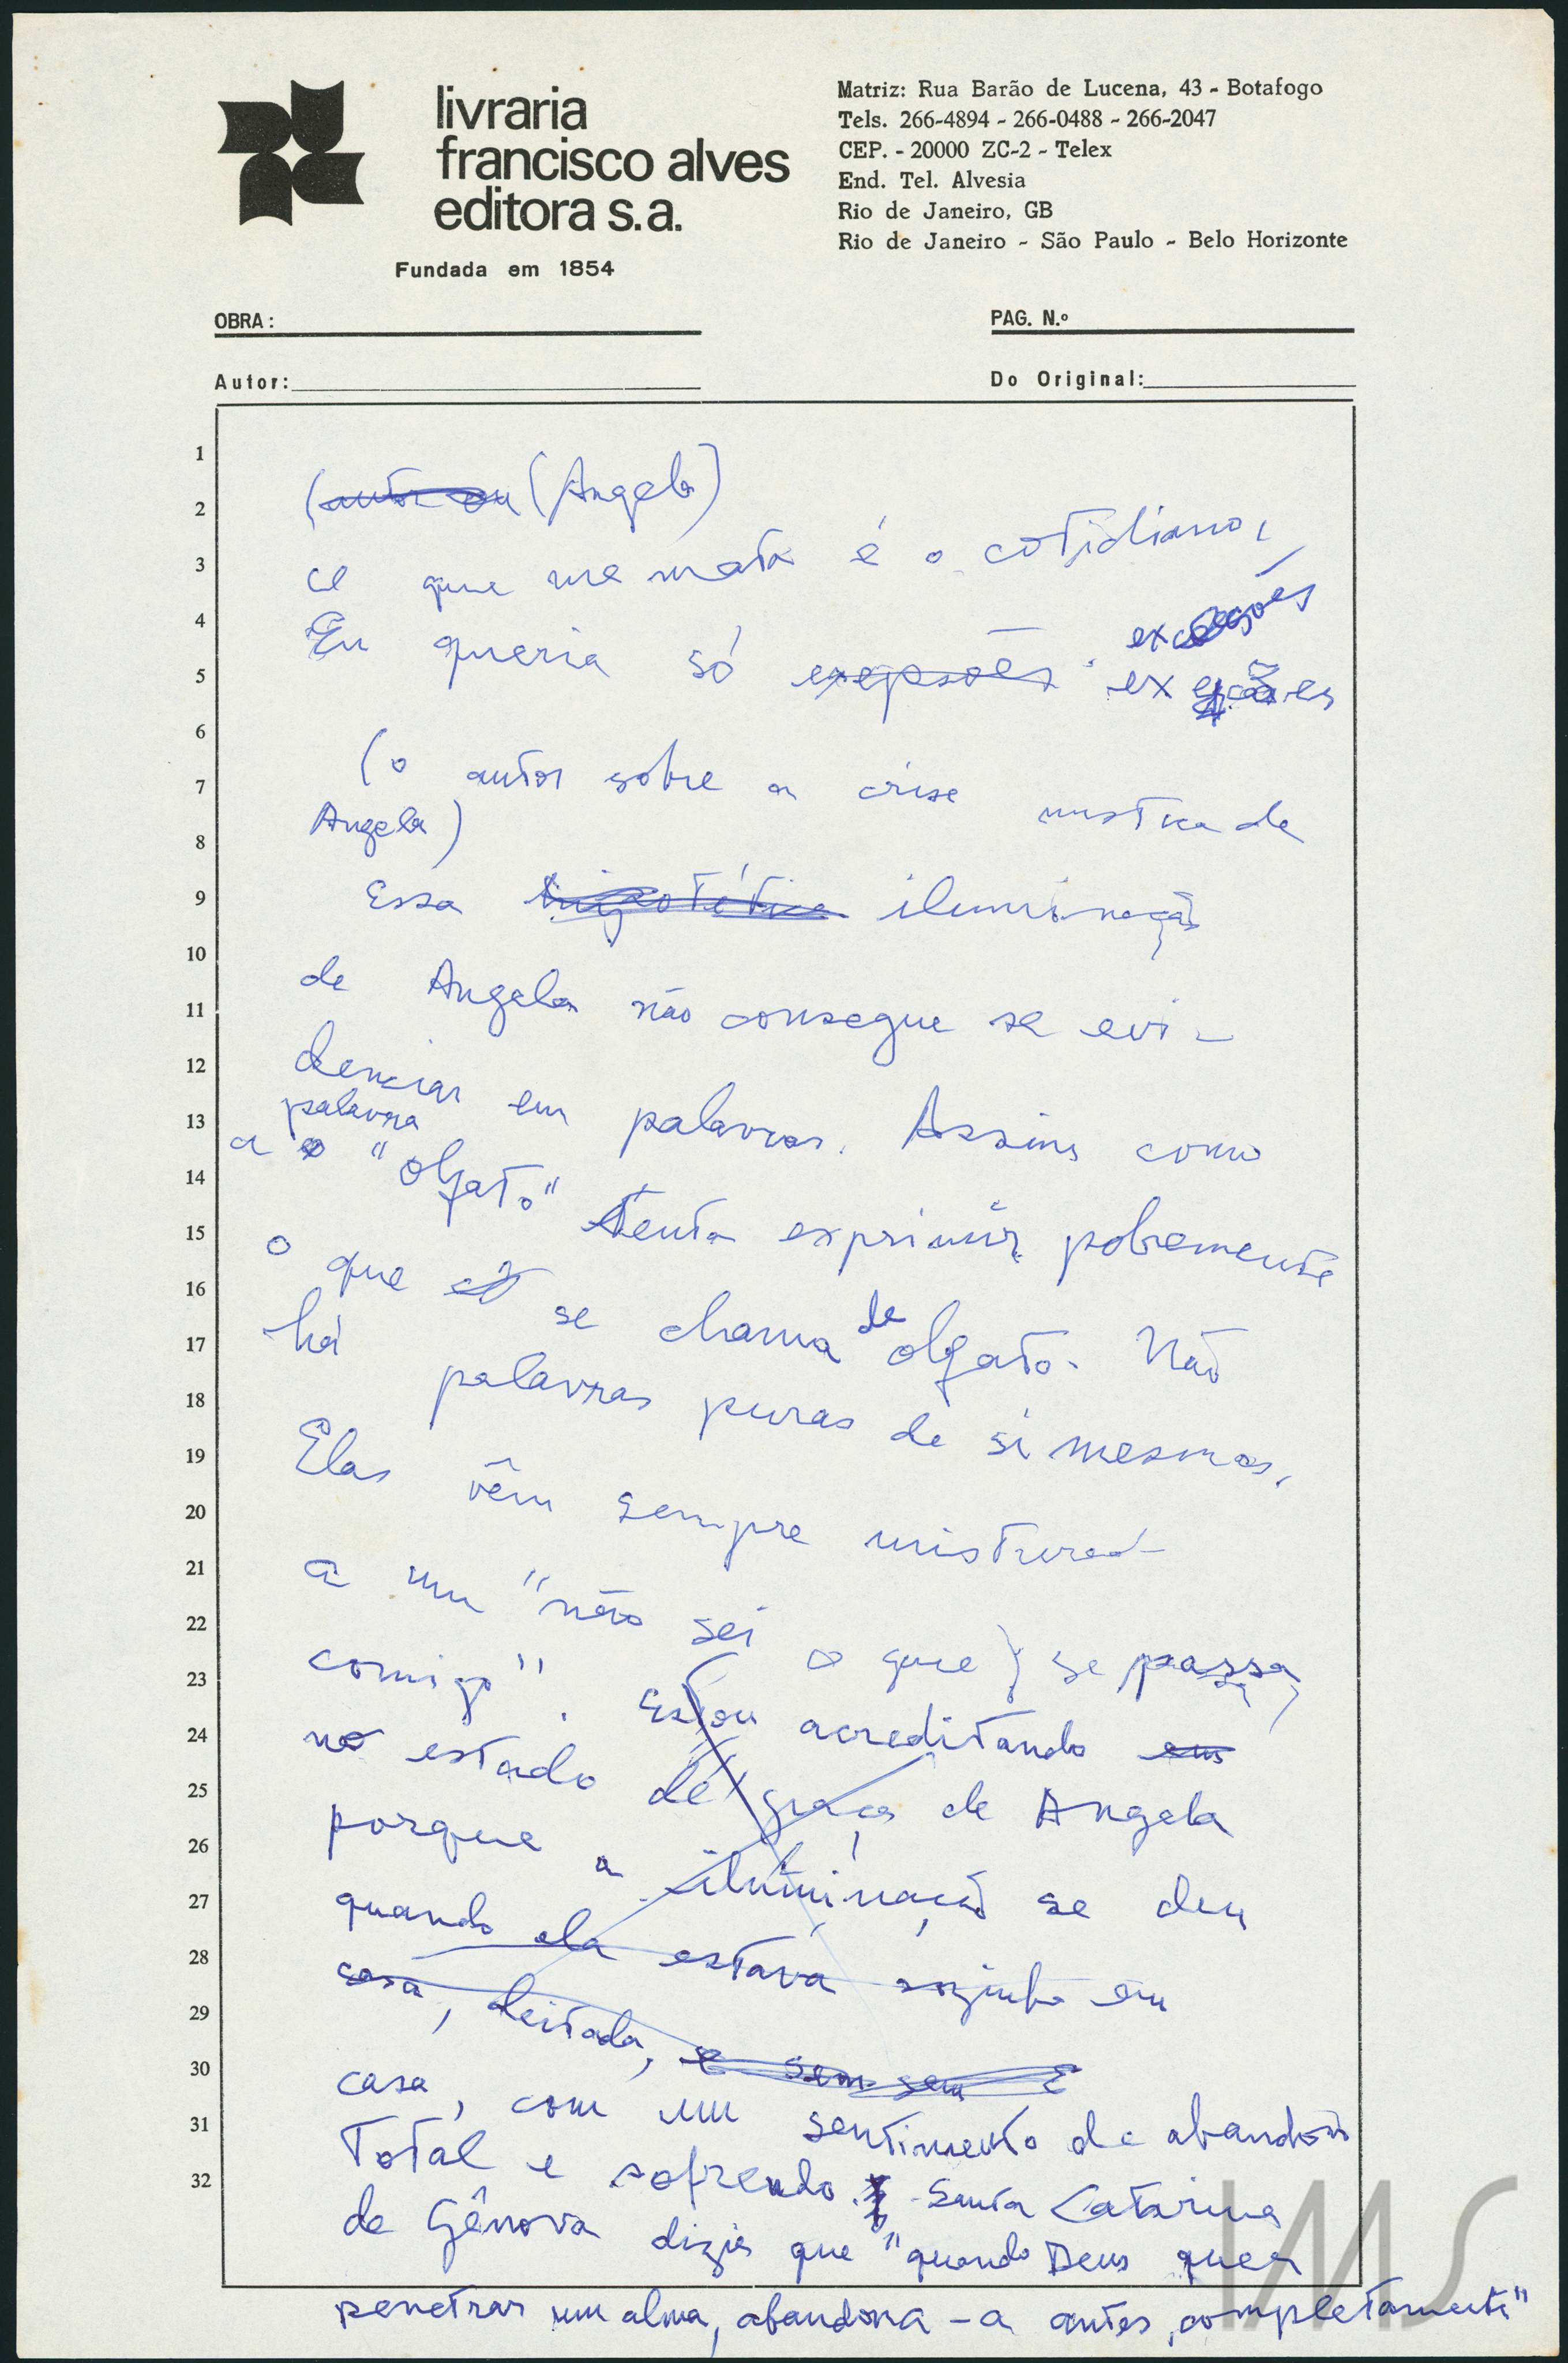 livraria
francisco alves
editora s.a.
Fundada em 1854
Matriz: Rua Barão de Lucena, 43 - Botafogo
Tels. 266-4894 - 266-0488 - 266-2047
CEP. - 20000 ZC-2 - Telex
End. Tel. Alvesia
Rio de Janeiro, GB
Rio de Janeiro - São Paulo - Belo Horizonte
OBRA:
PAG. N.º
Autor:
Do Original:
1
2
3
4
5
6
7
8
9
10
11
12
13
14
15
16
17
18
19
20
21
22
23
24
25
26
27
28
29
30
31
32
(autor ou (Angela)
que me mata é o cotidiano,
Eu queria só exepsões exceções
(o autor sobre a crise mistica de
Angela)
Essa iluminação
de Angela não consegue se evi-
denciar em palavras. Assim como
a palavra "olfato" tenta exprimir pobremente
o que se chama de olfato. Não
há palavras puras de si mesmas.
Elas vêm sempre misturad
a um "não sei o que se passa
comigo". Estou acreditando em
no estado de graça de Angela
porque a iluminação se deu
quando ela estava sozinha em
casa, deitada, e sem sem
casa, com um sentimento de abandono
Total e sofrendo. Santa Catarina
de Gênova dizia que "quando Deus quer
penetrar um alma, abandona-a antes completamente"
IMS